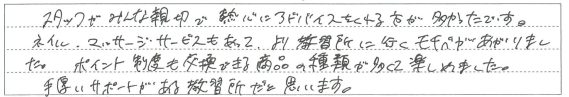 スタッフがみんな親切で熱心にアドバイスをくれる方が多かったです。
ネイル、マッサージサービスもあって、より教習所に行くモチベがあがりまし
た。ポイント制度も交換できる商品の種類が多くて楽しめました。
手厚いサポートがある教習所だと思います。